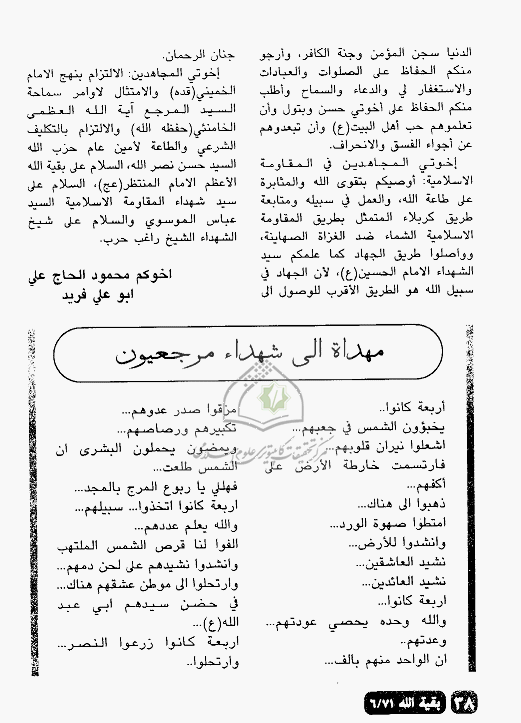 الدنيا سجن المؤمن وجنة الكافر، وأرجو
منكم الحفاظ على الصلوات والعبادات
والاستغفار لي والدعاء والسماح وأطلب
منكم الحفاظ على أخوتي حسن وبتول وأن
تعلموهم حب أهل البيت(ع) وأن تبعدوهم
عن أجواء الفسق والانحراف.
إخوتي المجاهدين في المقاومة
الاسلامية: أوصيكم بتقوى الله والمثابرة
على طاعة الله، والعمل في سبيله ومتابعة
طريق كربلاء المتمثل بطريق المقاومة
الاسلامية الشماء ضد الغزاة الصهاينة،
وواصلوا طريق الجهاد كما علمكم سيد
الشهداء الامام الحسين(ع)، لأن الجهاد في
سبيل الله هو الطريق الأقرب للوصول الى
جنان الرحمان.
إخوتي المجاهدين: الالتزام بنهج الامام
الخميني(قده) والامتثال لاوامر سماحة
السيد المرجع آية الله العظمى
الخامنئي(حفظه الله) والالتزام بالتكليف
الشرعي والطاعة لأمين عام حزب الله
السيد حسن نصر الله، السلام على بقية الله
الأعظم الامام المنتظر(عج)، السلام على
سيد شهداء المقاومة الاسلامية السيد
عباس الموسوي والسلام على شيخ
الشهداء الشيخ راغب حرب.
اخوكم محمود الحاج علي
ابو علي فريد
مهداة الى شهداء مرجعيون
أربعة كانوا..
يخبؤون الشمس في جعبهم...
اشعلوا نيران قلوبهم...
فارتسمت خارطة الأرض على
أكفهم...
ذهبوا الى هناك...
امتطوا صهوة الورد...
وانشدوا للأرض...
نشيد العاشقين...
نشيد العائدين...
اربعة كانوا...
والله وحده يحصي عودتهم...
وعدتهم..
ان الواحد منهم بالف...
مزقوا صدر عدوهم...
تكبيرهم ورصاصهم...
ويمضون يحملون البشرى ان
الشمس طلعت...
فهللي يا ربوع المرج بالمجد...
اربعة كانوا اتخذوا... سبيلهم...
والله يعلم عددهم...
الفوا لنا قرص الشمس الملتهب
وانشدوا نشيدهم على لحن دمهم...
وارتحلوا الى موطن عشقهم هناك...
في حضن سيدهم ابي عبد
الله(ع)...
اربعة كانوا زرعوا النصر...
وارتحلوا..
٣٨ بقية الله ٦/٧١